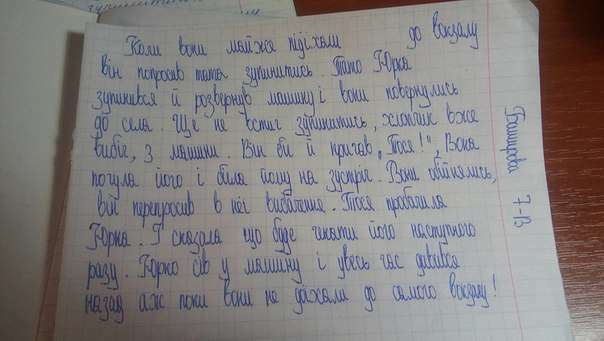 Коли вони майже підіхали до вокзалу
він попросив тата зупинитись. Тато Юрка
зупинився й розвернув машину і вони повернулись
до села. Ще не встиг зупинитись, хлопчик вже
вибіг, з машини. Він біг й кричав „Тося!", Вона
почула його і бігла йому на зустріч. Вони обійнялись,
він перепросив в неї вибачення. Тося пробачила
Юрка. І сказала що буде чекати його наступного
разу. Юрко сів у машину і увесь час дивився
назад аж поки вони не доїхали до самого вокзалу!
7-В